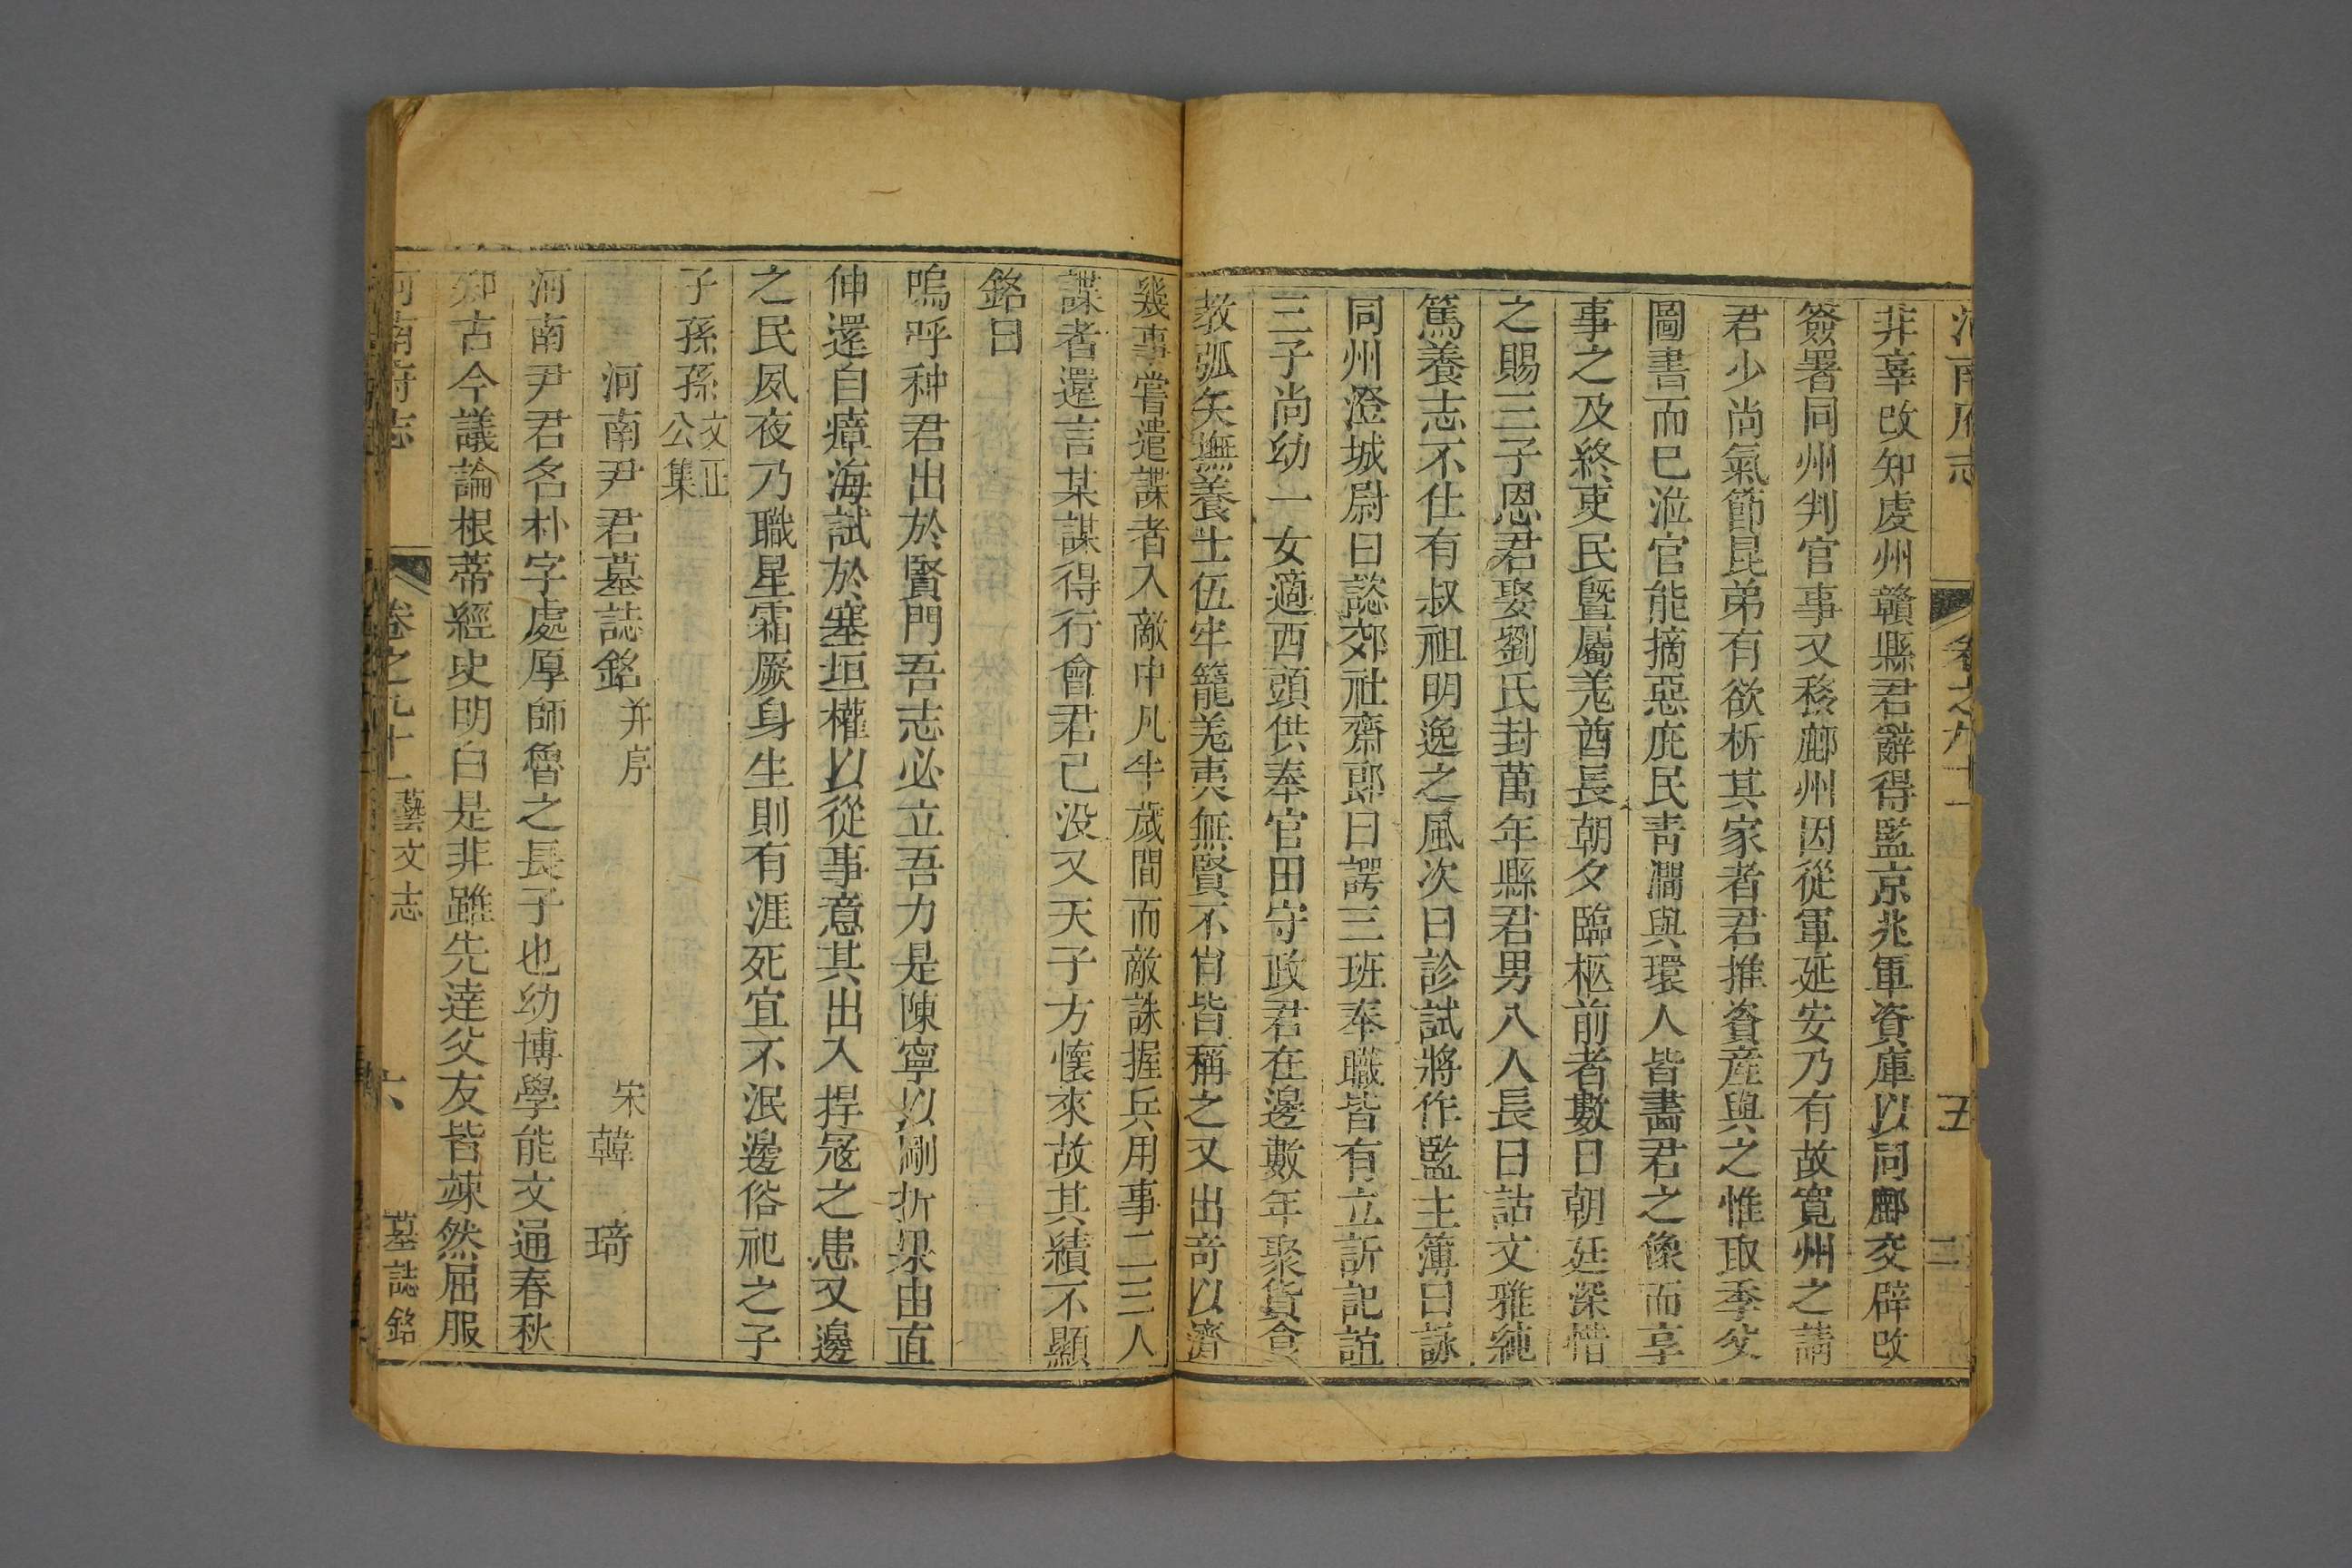 非辜改知虔州贛縣君辭得監京兆軍資庫以同鄜交辟改
簽署同州判官事又移鄜州因從軍延安乃有故寛州之請
君少尚氣節昆弟有欲析其家者君推資産與之惟取季父
圖書而巳涖官能摘惡庇民青澗與環人皆畵君之像而享
事之及終吏民暨屬羗酋長朝夕臨柩前者數日朝廷深惜
之賜三子恩君娶劉氏封萬年縣君男八人長曰詁文雅純
篤養志不仕有叔祖明逸之風次曰診試將作監主簿曰詠
同州澄城尉曰諮郊社齋郎曰諤三班奉職皆有立訢記誼
三子尚幼一女適西頭供奉官田守政君在邊數年聚貨食
教弧矢撫養士伍牢籠羗夷無賢不肖皆稱之又出奇以濟
幾事嘗遣諜者入敵中凡半歲間而敵誅握兵用事二三人
諜者還言某謀得行會君已没又天子方懷來故其績不顯
銘曰
嗚呼种君出於賢門吾志必立吾力是陳寧以剛折杲由直
伸還自瘴海試於塞垣權以從事意其出入捍冦之患又邊
之民夙夜乃職星霜厥身生則有涯死宜不泯邊俗祀之子
子孫孫文正公集
河南尹君墓誌銘并序 宋韓琦
河南尹君名朴字處厚師魯之長子也幼博學能文通春秋
卿古今議論根蒂經史明白是非雖先達父友皆竦然屈服
河南府志 卷之九十一藝文志 六 墓誌銘